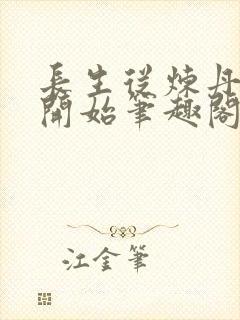 長生從煉丹
開始筆趣閣
江金筆